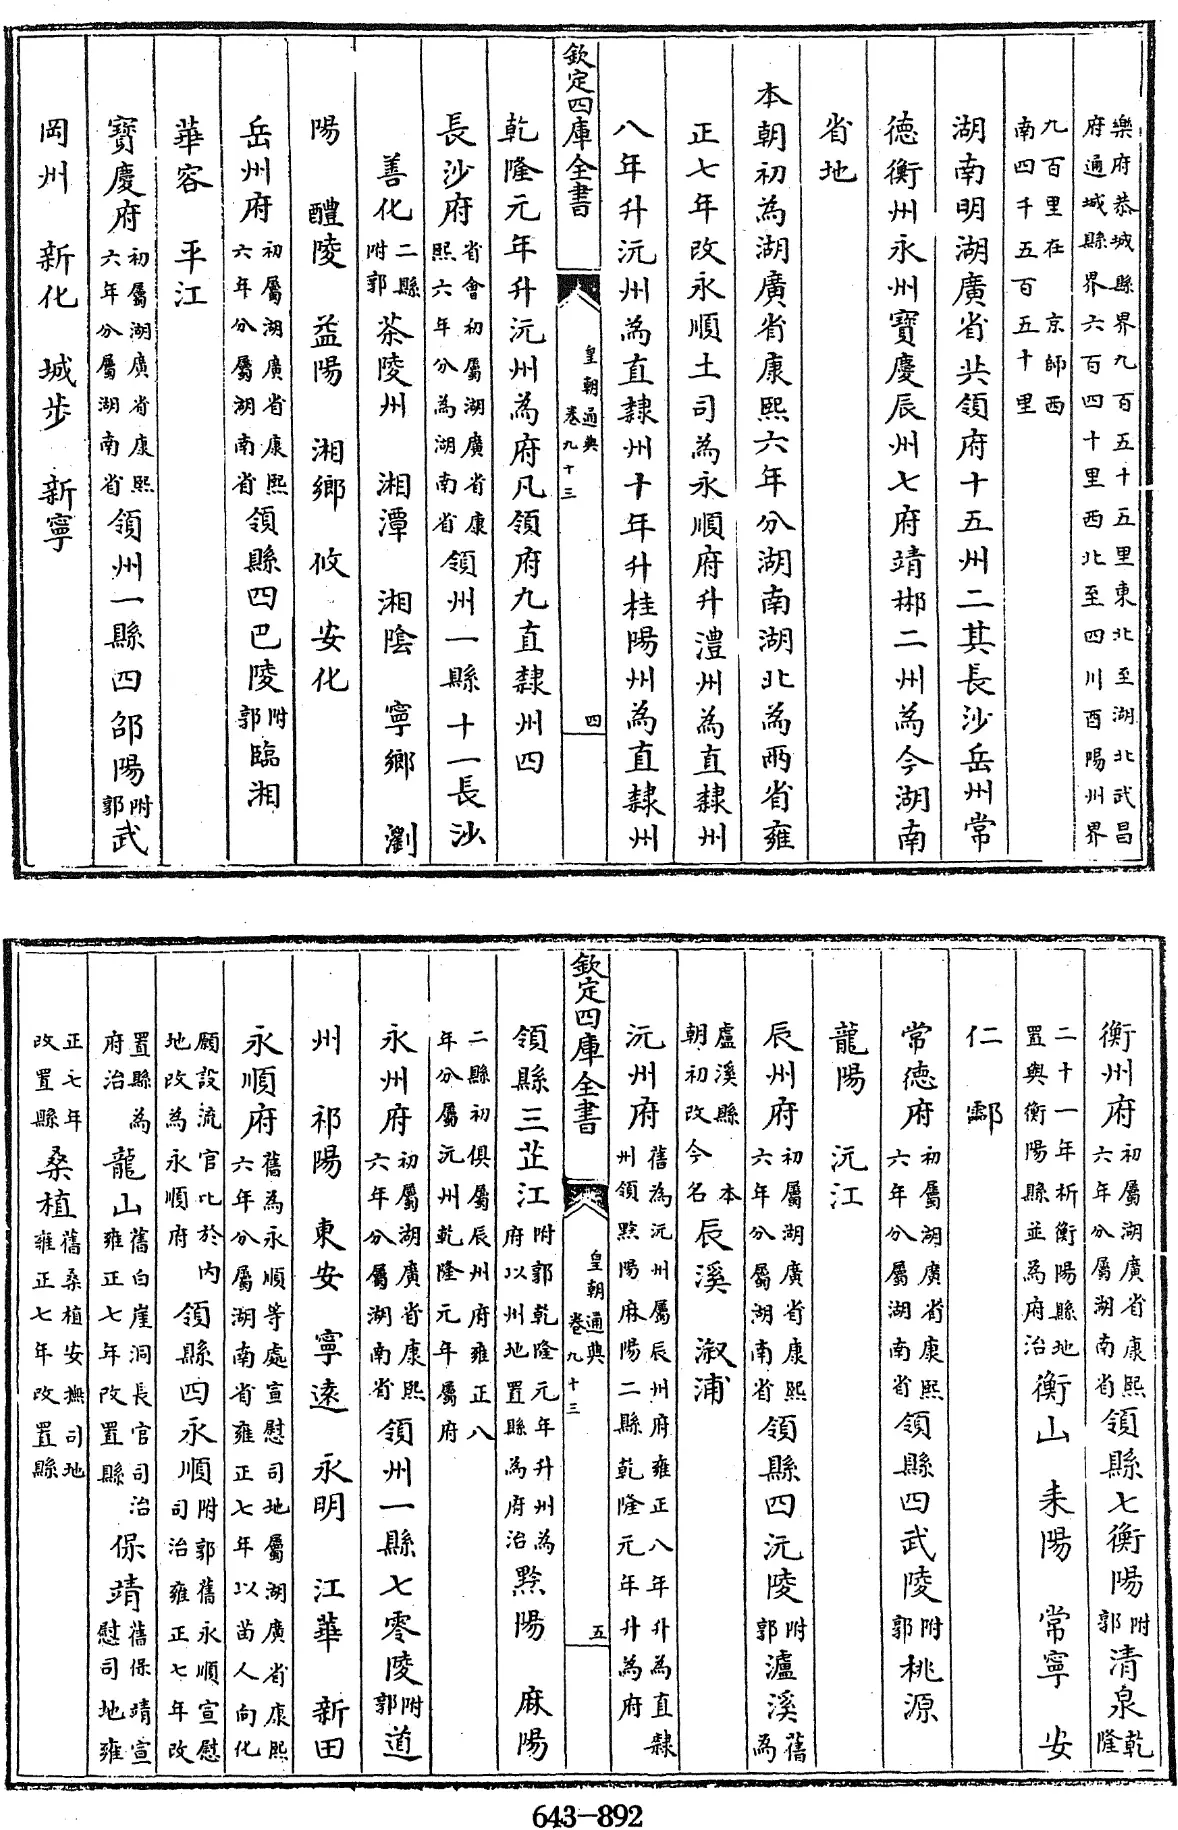 樂府恭城縣界九百五十五里東北至湖北武昌
府通城縣界六百四十里西北至四川酉陽州界
九百里在 京師西
南四千五百五十里
湖南明湖廣省共領府十五州二其長沙岳州常
德衡州永州寶慶辰州七府靖郴二州為今湖南
省地
本朝初為湖廣省康熙六年分湖南湖北為兩省雍
正七年改永順土司為永順府升澧州為直隸州
八年升沅州為直隸州十年升桂陽州為直隸州
欽定四庫全書 皇朝通典 卷九十三 四
乾隆元年升沅州為府凡領府九直隸州四
長沙府省會初屬湖廣省康熙六年分為湖南省領州一縣十一長沙
善化二縣附郭茶陵州 湘潭 湘陰 寧鄉 瀏
陽 醴陵 益陽 湘鄉 攸 安化
岳州府初屬湖廣省康熙六年分屬湖南省領縣四巴陵附郭臨湘
華容 平江
寶慶府初屬湖廣省康熙六年分屬湖南省領州一縣四邵陽附郭武
岡州 新化 城步 新寧
衡州府初屬湖廣省康熙六年分屬湖南省領縣七衡陽附郭清泉乾隆
二十一年析衡陽縣地置與衡陽縣並為府治衡山 耒陽 常寧 安
仁 酃
常德府初屬湖廣省康熙六年分屬湖南省領縣四武陵附郭桃源
龍陽 沅江
辰州府初屬湖廣省康熙六年分屬湖南省領縣四沅陵附郭瀘溪舊為
盧溪縣 本朝初改今名辰溪 漵浦
沅州府舊為沅州屬辰州府雍正八年升為直隸州領黔陽麻陽二縣乾隆元年升為府
欽定四庫全書 皇朝通典 卷九十三 五
領縣三芷江附郭乾隆元年升州為府以州地置縣為府治黔陽 麻陽
二縣初俱屬辰州府雍正八年分屬沅州乾隆元年屬府
永州府初屬湖廣省康熙六年分屬湖南省領州一縣七零陵附郭道
州 祁陽 東安 寧遠 永明 江華 新田
永順府舊為永順等處宣慰司地屬湖廣省康熙六年分屬湖南省雍正七年以苗人向化
願設流官比於內地改為永順府領縣四永順附郭舊永順宣慰司治雍正七年改
置縣為府治龍山舊白崖洞長官司治雍正七年改置縣保靖舊保靖宣慰司地雍
正七年改置縣桑植舊桑植安撫司地雍正七年改置縣
643-892